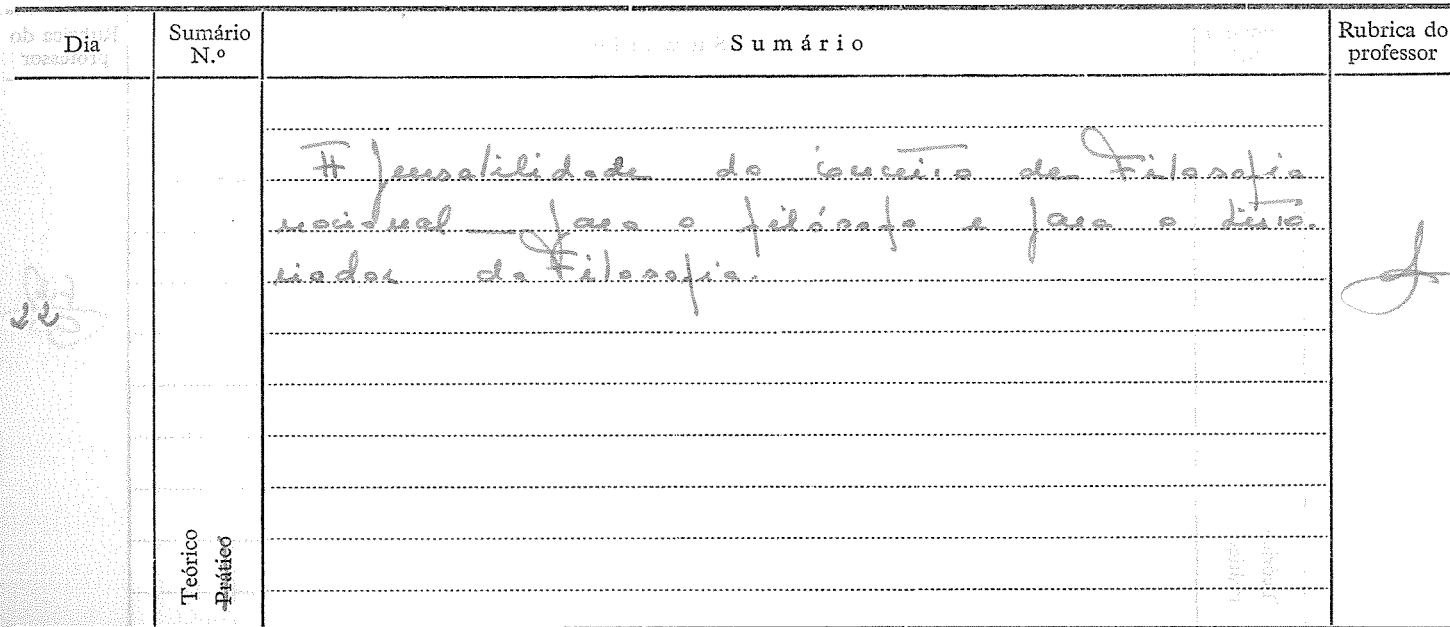 Dia
Sumário N.º
Sumário
Rubrica do professor
A pensabilidade do conceito de Filosofia
nacional — para o filósofo e para o histo-
riador da Filosofia.
22
Teórico
Prático